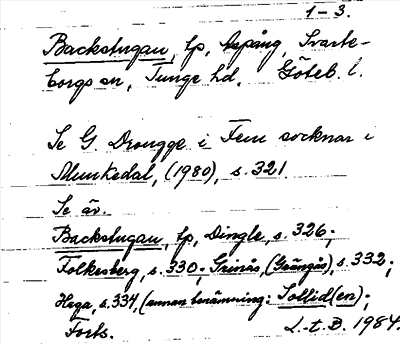 1-3.
Backstugan, tp, Aspång, Svarte-
borgs sn, Tunge hd, Göteb. l.
Se G Drougge i Fem socknar i
Munkedal, (1980), s. 321
Se äv.
Backstugan, tp, Dingle, s. 326;
Folkesberg, s. 330; Grinås, (Grängås), s. 332;
Hoga, s. 334, (annan benämning: Sollid(en);
Forts. L.-t. B. 1984.